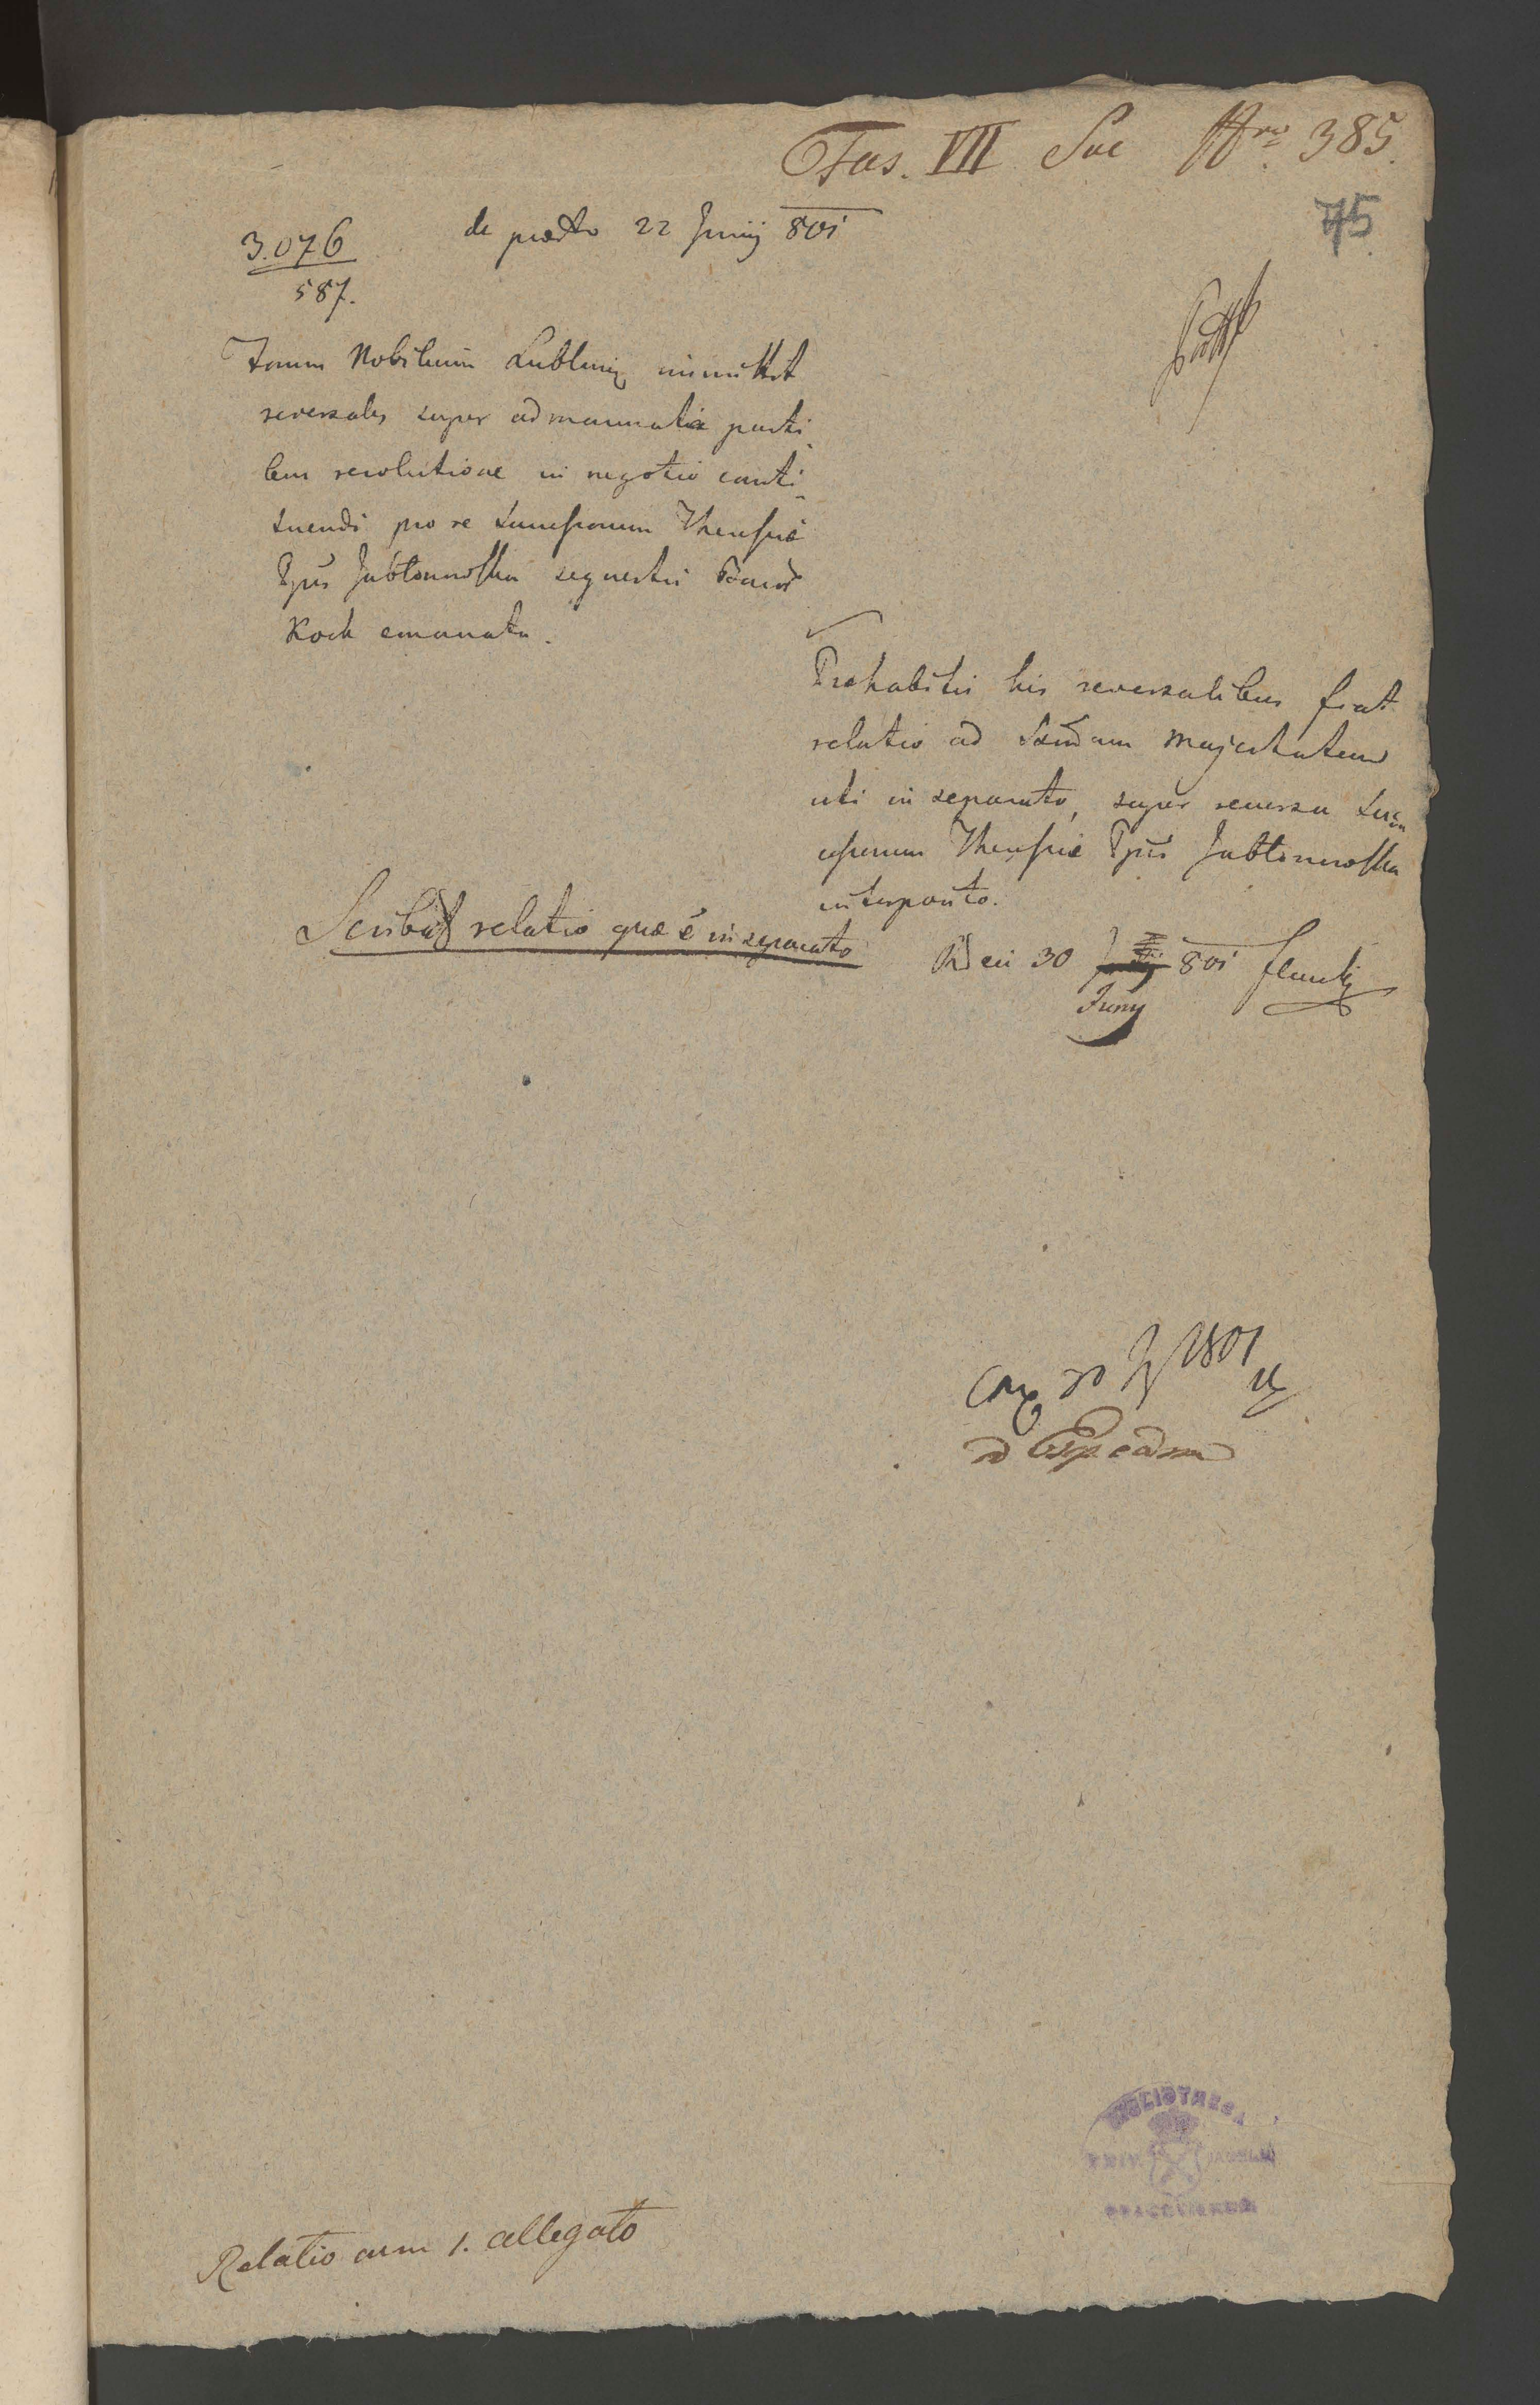 Fas. VII Suc Nro 385.
75
3.076
587.
de praesto 22 Junij 801
Forum Nobilium Lublinens immittit
reversales super admanuatis parti-
bus resolutione in negotio consti-
tuendi pro re Successorum Theresiae
Ppis Jabłonnoska sequestri Bonor
Kock emanata.
Prohabitis his reversalibus fiat
relatio ad Sacram Majestatem
uti in separato, super recursu Suc-
cessorum Theresiae Ppis Jabłonnoska
interposito.
Scribat relatio quae é in separato
30 801
Juny
30 1801
Relatio cum 1. allegato
BIBLIOTHECA
UNIV. JAGELL.
CRACOVIENSIS